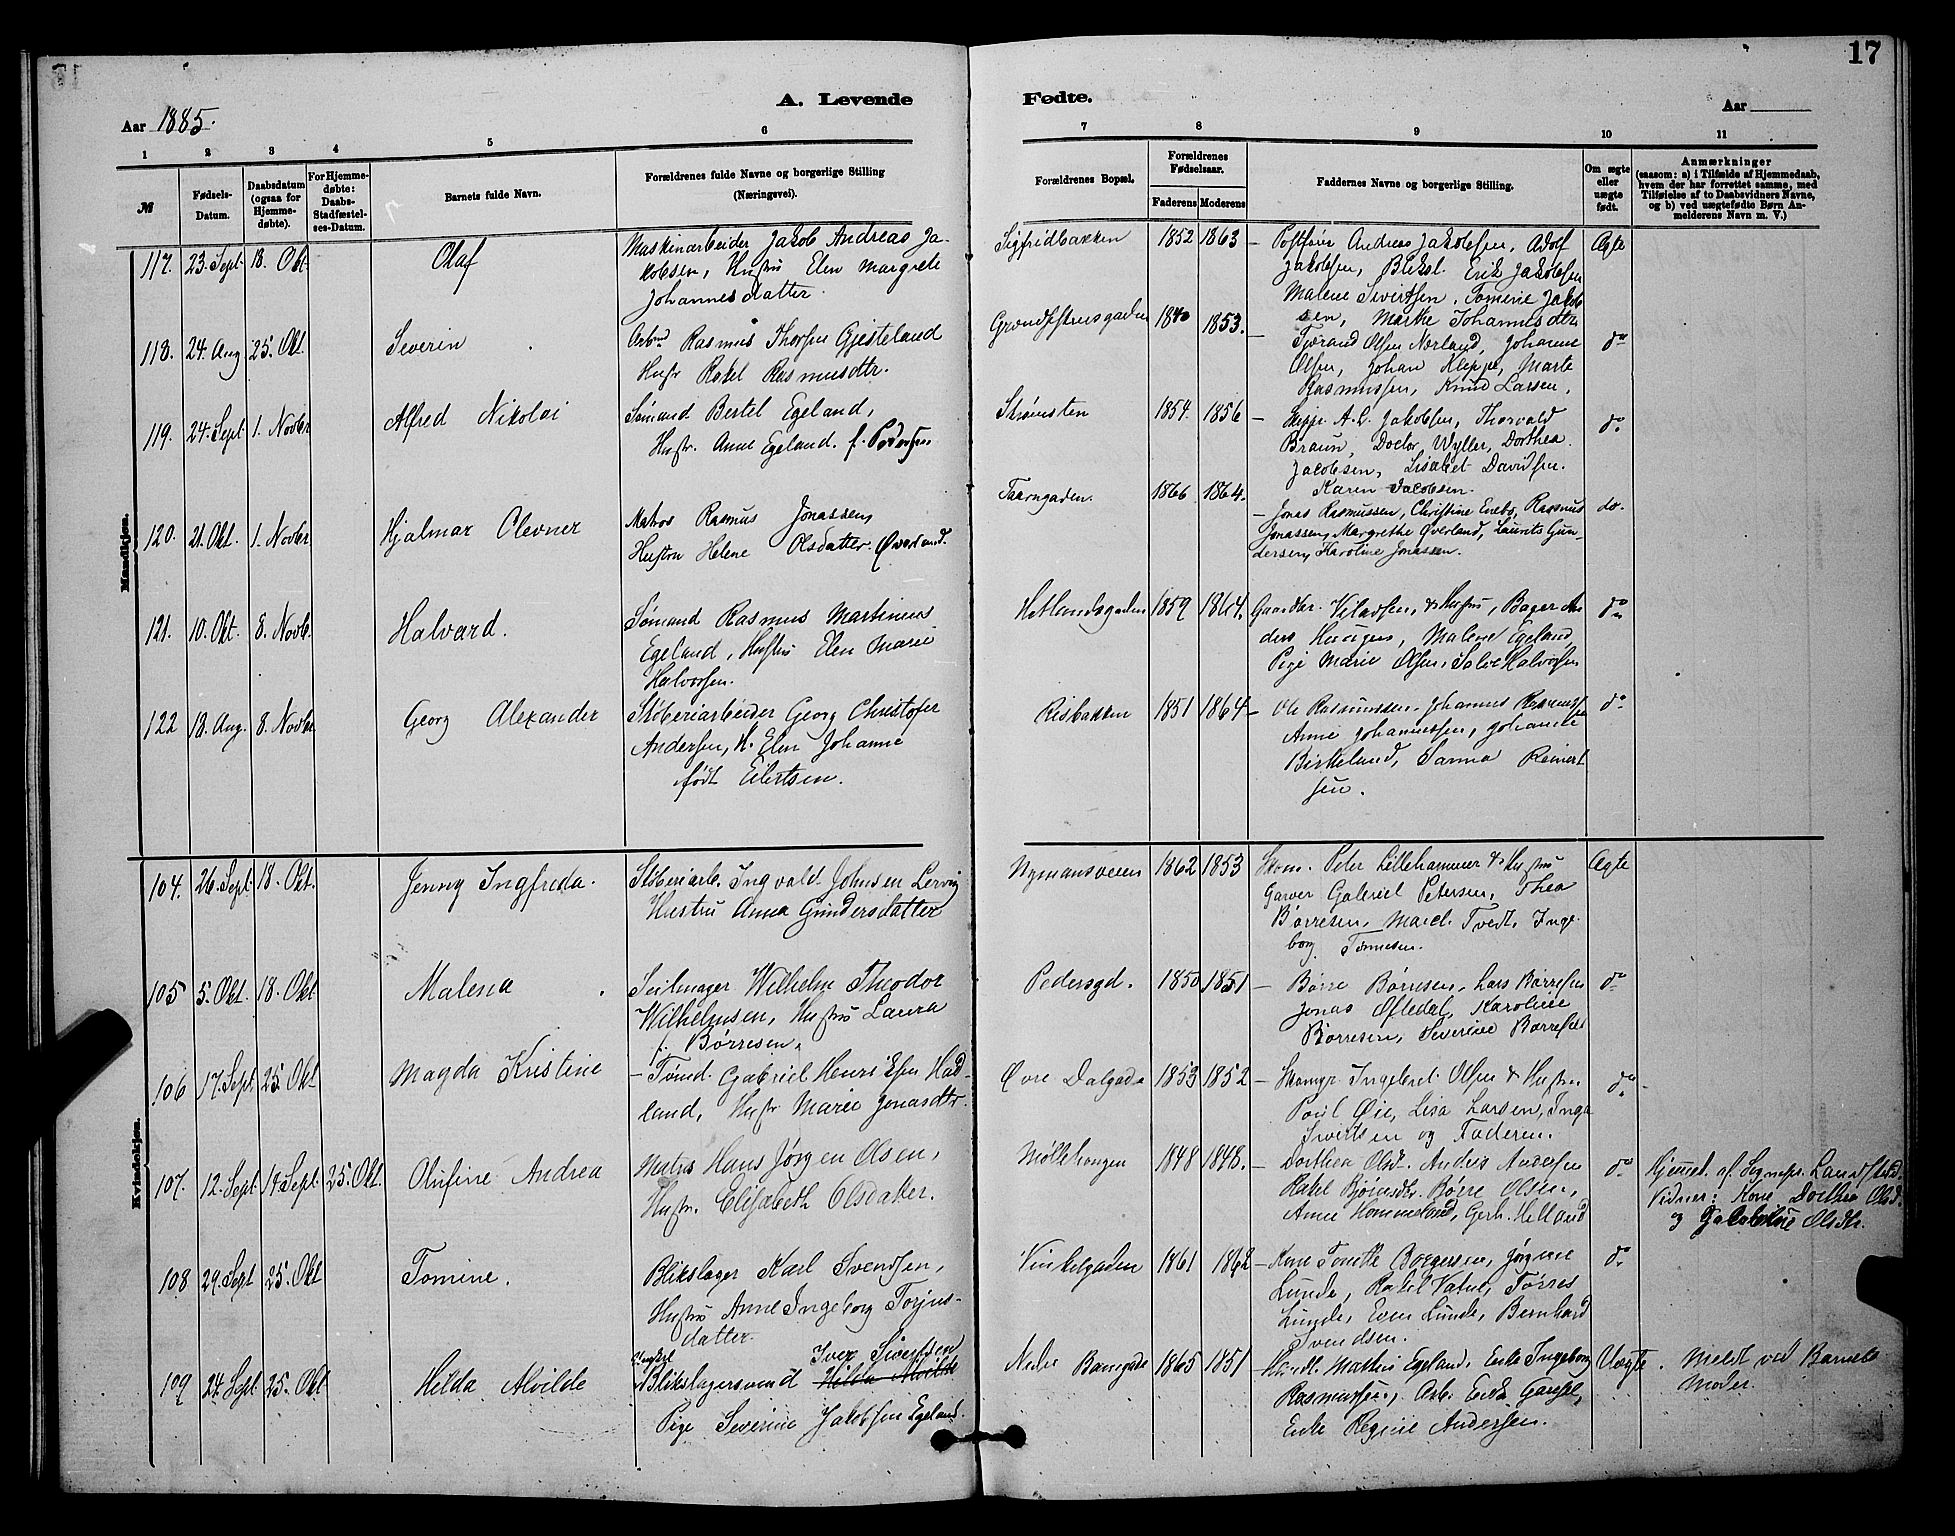 17
A. Levende
Fødte.
Aar 1885.
Aar
1 2 3 4 5 6 7 8 9 10 11
№
Fødsels-
Datum.
Daabsdatum
(ogsaa for
Hjemme-
døbte).
For Hjemme-
døbte:
Daabs-
Stadfæstel-
ses-Datum.
Barnets fulde Navn.
Forældrenes fulde Navne og borgerlige Stilling
(Næringsvei).
Forældrenes Bopæl.
Forældrenes
Fødselsaar.
Faderens Moderens
Faddernes Navne og borgerlige Stilling.
Om ægte
eller
uægte
født.
Anmærkninger
(saasom: a) i Tilfælde af Hjemmedaab,
hvem der har forrettet samme, med
Tilføielse af to Daabsvidners Navne,
og b) ved uægtefødte Børn An-
melderens Navn m. V.)
Mandkjøn.
117. 23. Sept. 18. Okt. Olaf
Maskinarbeider Jakob Andreas Ja-
kobsen, Hustru Elen Margrete
Johannesdatter.
Sigfridbakken 1852 1863
Andreas Jakobsen, Adolf
Jakobsen, Bliksl. Erik Jakobsen
Malene Sivertsen, Tomine Jakob
sen, Marthe Johannesdtr
Ægte
118. 24. Aug 25. Okt. Severin
Arbm Rasmus Thorsen Gjesteland
Hustr Rakel Rasmusdtr.
1840 1853.
Tjørand Olsen Nærland, Johanne
Olsen, Johan Kleppe, Marte
Rasmussen, Knud Larsen,
do
119. 24. Sept. 1. Novbr Alfred Nikolai
Sømand Bertel Egeland,
Hustr. Anne Egeland. f. Pedersen
Strømsten 1854. 1856
Skippr. A. C. Jakobsen, Thorvald
Braun, Doctor Wyller, Dorthea
Jacobsen, Lisabet Davidsen.
Karen Jacobsen.
do
120. 21. Okt. 1. Novbr Hjalmar Clevner
Matros Rasmus Jonassen,
Hustru Helene Olsdatter Øverland.
Taarngaden. 1866 1864.
Jonas Rasmussen, Christine Enebo, Rasmus
Jonassen, Margrethe Øverland, Laurits Gun-
dersen, Karoline Jonassen.
do.
121. 10. Okt. 8. Novbr. Halvard.
Sømand Rasmus Martinius
Egeland, Hustru Elen Marie
Halvorsen.
Hetlandsgaden 1859 1864.
Hustru, Bager An
ders Haugen, Malene Egeland,
Pige Marie Olsen, Salve Halvorsen
do
122 18. Aug. 8. Novbr Georg Alexander
Støberiarbeider Georg Christofer
Andersen, H. Elen Johanne
født Eilertsen.
Risbakken 1851 1864
Ole Rasmussen. Johannes Rasmuss
Anne Johannessen, Johanne
Birkeland, Sanna Reinert
sen.
do
Kvindekjøn.
104. 26. Sept. 18. Okt. Jenny Ingfreda.
Støberiarb. Ingvald Johnsen Lervig
Hustru Anna Gundersdatter
Nymansveien 1862 1853
Skom. Peter Lillehammer & Hustru
Garver Gabriel Petersen, Thea
Børresen, Tvedt, Inge-
borg Tønnesen.
Ægte
105 5. Okt. 18. Okt Malena
Seilmager Wilhelm Theodor
Wilhelmsen, Hustru Laura
f. Børresen.
Pedersgd. 1850 1851
Børre Børresen, Lars Børresen
Jonas Oftedal, Karoline
Børresen, Severine Børresen
do
106 17. Sept. 25. Okt Magda Kristine
Tømd. Gabriel Henriksen Had-
land, Hustr Marie Jonasdtr.
Øvre Dalgade 1853 1852
Skomgr. Ingebret Olsen & Hustru
Poul Øie, Lisa Larsen, Inga
Sivertsen og Faderen.
do
107. 12. Sept. 14 Sept. 25. Okt. Olufine Andrea
Matros Hans Jørgen Olsen,
Hustr. Elisabeth Olsdatter.
Møllehaugen 1848 1848.
Dorthea Olsd. Anders Andersen
Rakel Bjørnsdtr. Børre Olsen,
Anne Hommeland, Gerh. Helland
do
Hjemmed. af Sognepr. Landstad.
Vidner: Kone Dorthea Olsd.
og Jakobine Olsdtr.
108 29. Sept 25. Okt Tomine.
Blikslager Karl Svendsen,
Hustru Anne Ingeborg Torjus-
datter.
Vinkelgaden 1861 1862
Kone Tomtke Borgersen, Jørgine
Lunde, Rakel Vatne, Torres
Lunde, Even Lunde, Bernhard
Svendsen.
do
109 24. Sept 25. Okt Hilda Alvilde
Ungkrl Iver Sivertsen
Blikslagersvend Hilda Alvilde
Pige Severine Jakobsen Egeland.
Nedre Banegade 1865 1851
Handl. Mathias Egeland, Enke Ingeborg
Rasmussen, Arb. Erik Gausel,
Enke Regine Andersen.
Uægte. Meldt ved Barnets
Moder.